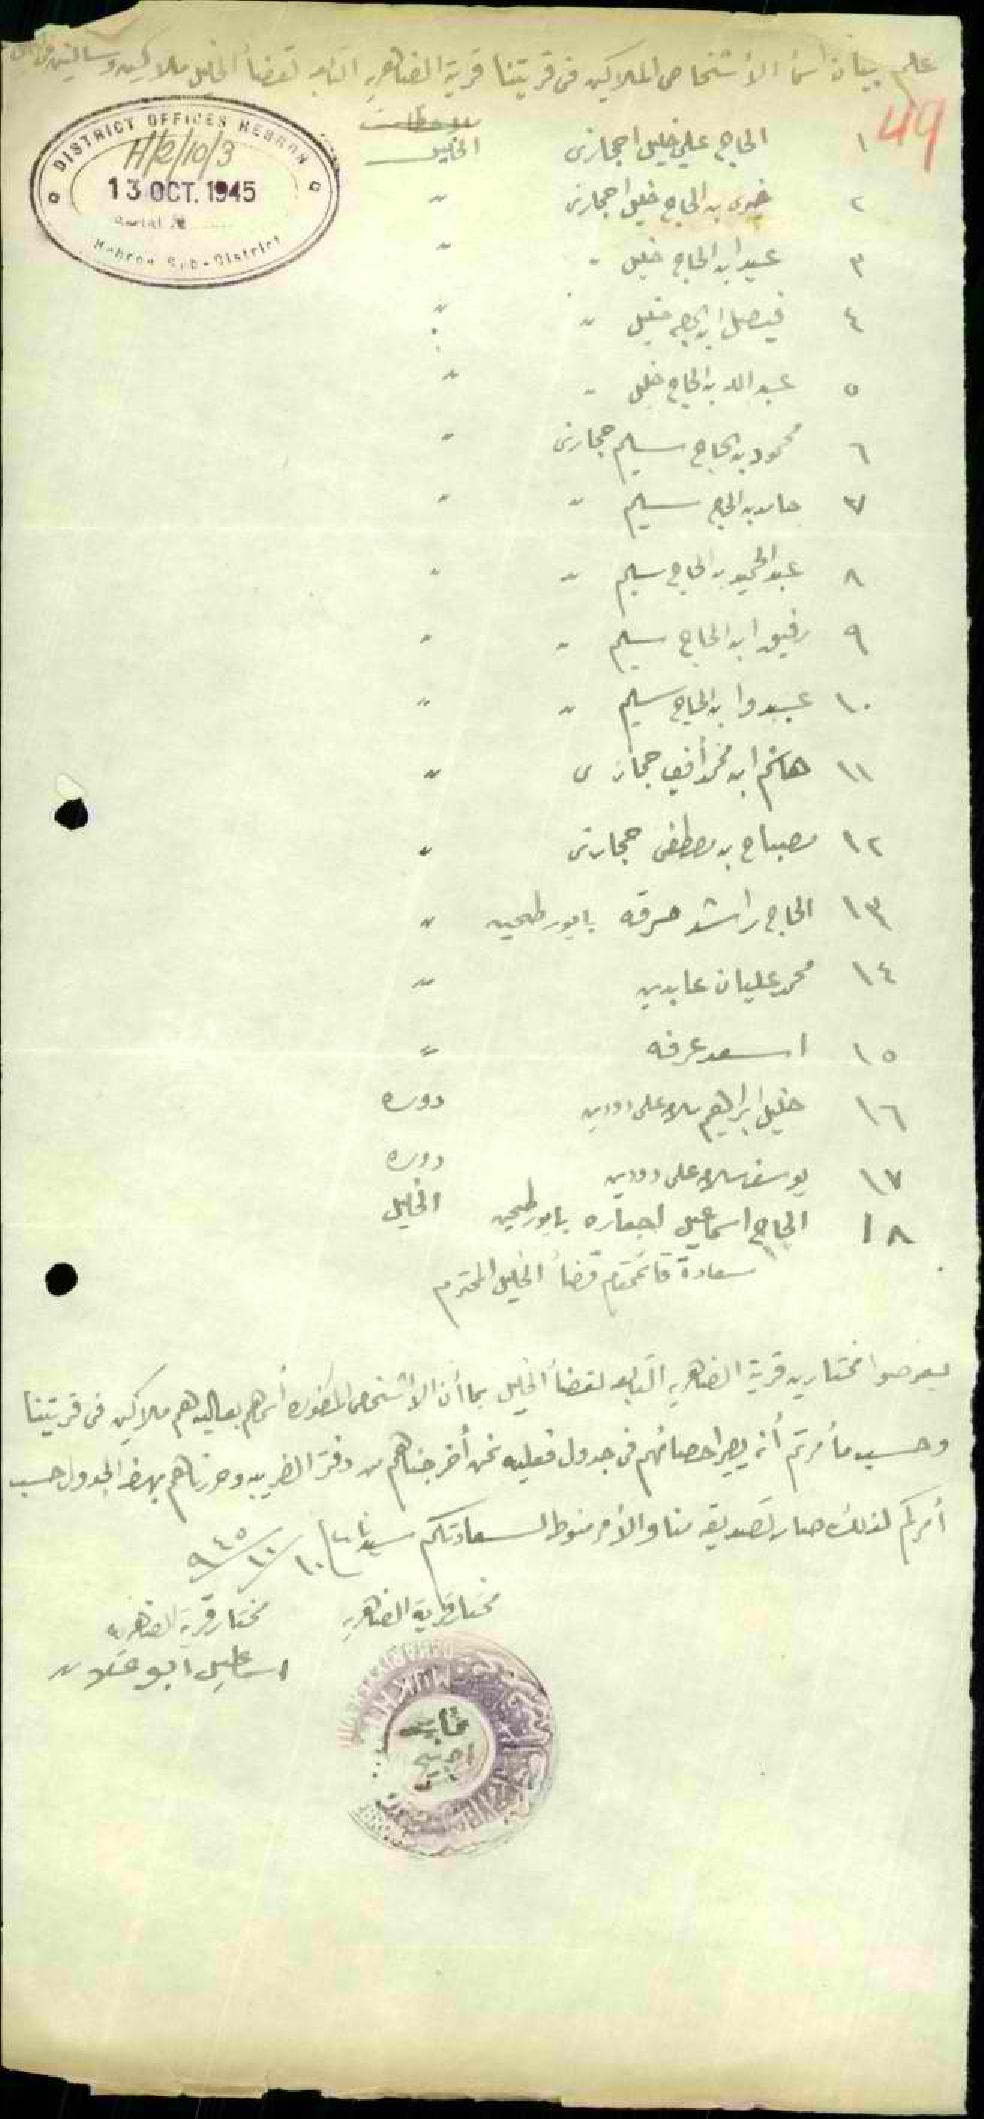 علم بيان اسماء الأشخاص الملاكين في قريتنا قرية الضاهريه التابعه لقضأ الخليل ملاكين وساكنين في
49
DISTRICT OFFICES HEBRON
H/2/10/3
13 OCT. 1945
Serial №
Hebron Sub-District
١ الحاج علي خليل احجازي الخليل
٢ خيري بن الحاج خليل احجازي "
٣ عيد ابن الحاج خليل " "
٤ فيصل ابن الحاج خليل " "
٥ عبد الله بن الحاج خليل " "
٦ محمود بن الحاج سليم حجازي "
٧ حامد بن الحاج سليم " "
٨ عبد الحميد بن الحاج سليم " "
٩ رفيق ابن الحاج سليم " "
١٠ عبدو ابن الحاج سليم " "
١١ هاشم ابن محمد حجازي "
١٢ مصباح بن مصطفى حجازي "
١٣ الحاج راشد بابور طحين "
١٤ محمد عليان عابدين "
١٥ اسعد عرفه "
١٦ خليل ابراهيم سلامه علي دودين دوره
١٧ يوسف سلامه علي دودين دوره
١٨ الحاج اسماعيل اجعاره بابور طحين الخليل
سعادة قائمقام قضأ الخليل المحترم
يعرضوا مختارين قرية الضاهريه التابعه لقضأ الخليل بما أن الأشخاص المذكوره أسماهم بعاليه هم ملاكين في قريتنا
وحسب ما أمرتم أنه يصير احصائهم في جدول فعليه نحن أخرجناهم من دفتر الضريبه وحررناهم بهذا الجدول حسب
أمركم لذلك صار تصديقه منا والأمر منوط لسعادتكم سيدنا ١٠/١٠/٩٤٥
مختار قرية الضاهريه
مختار قرية الضاهريه
اسماعيل ابو علان